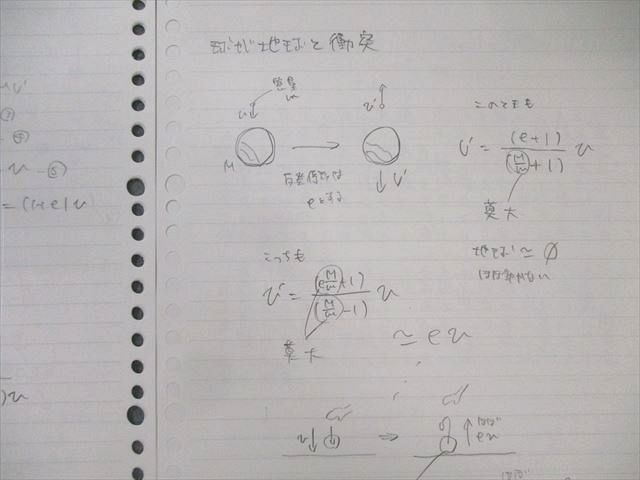 球が地球と衝突
質量
m
v
v'
M
V'
反発係数は
eとする
このときも
V' = (e+1) / (M/m + 1) v
莫大
地球 ≃ 0
ほぼ動かない
こっちも
v' = (e M/m + 1) / (M/m - 1) v
莫大
≃ ev
v
⇒
ほぼ
ev
ほぼ
V'
③
④
v - ⑤
= (1+e)v
)v